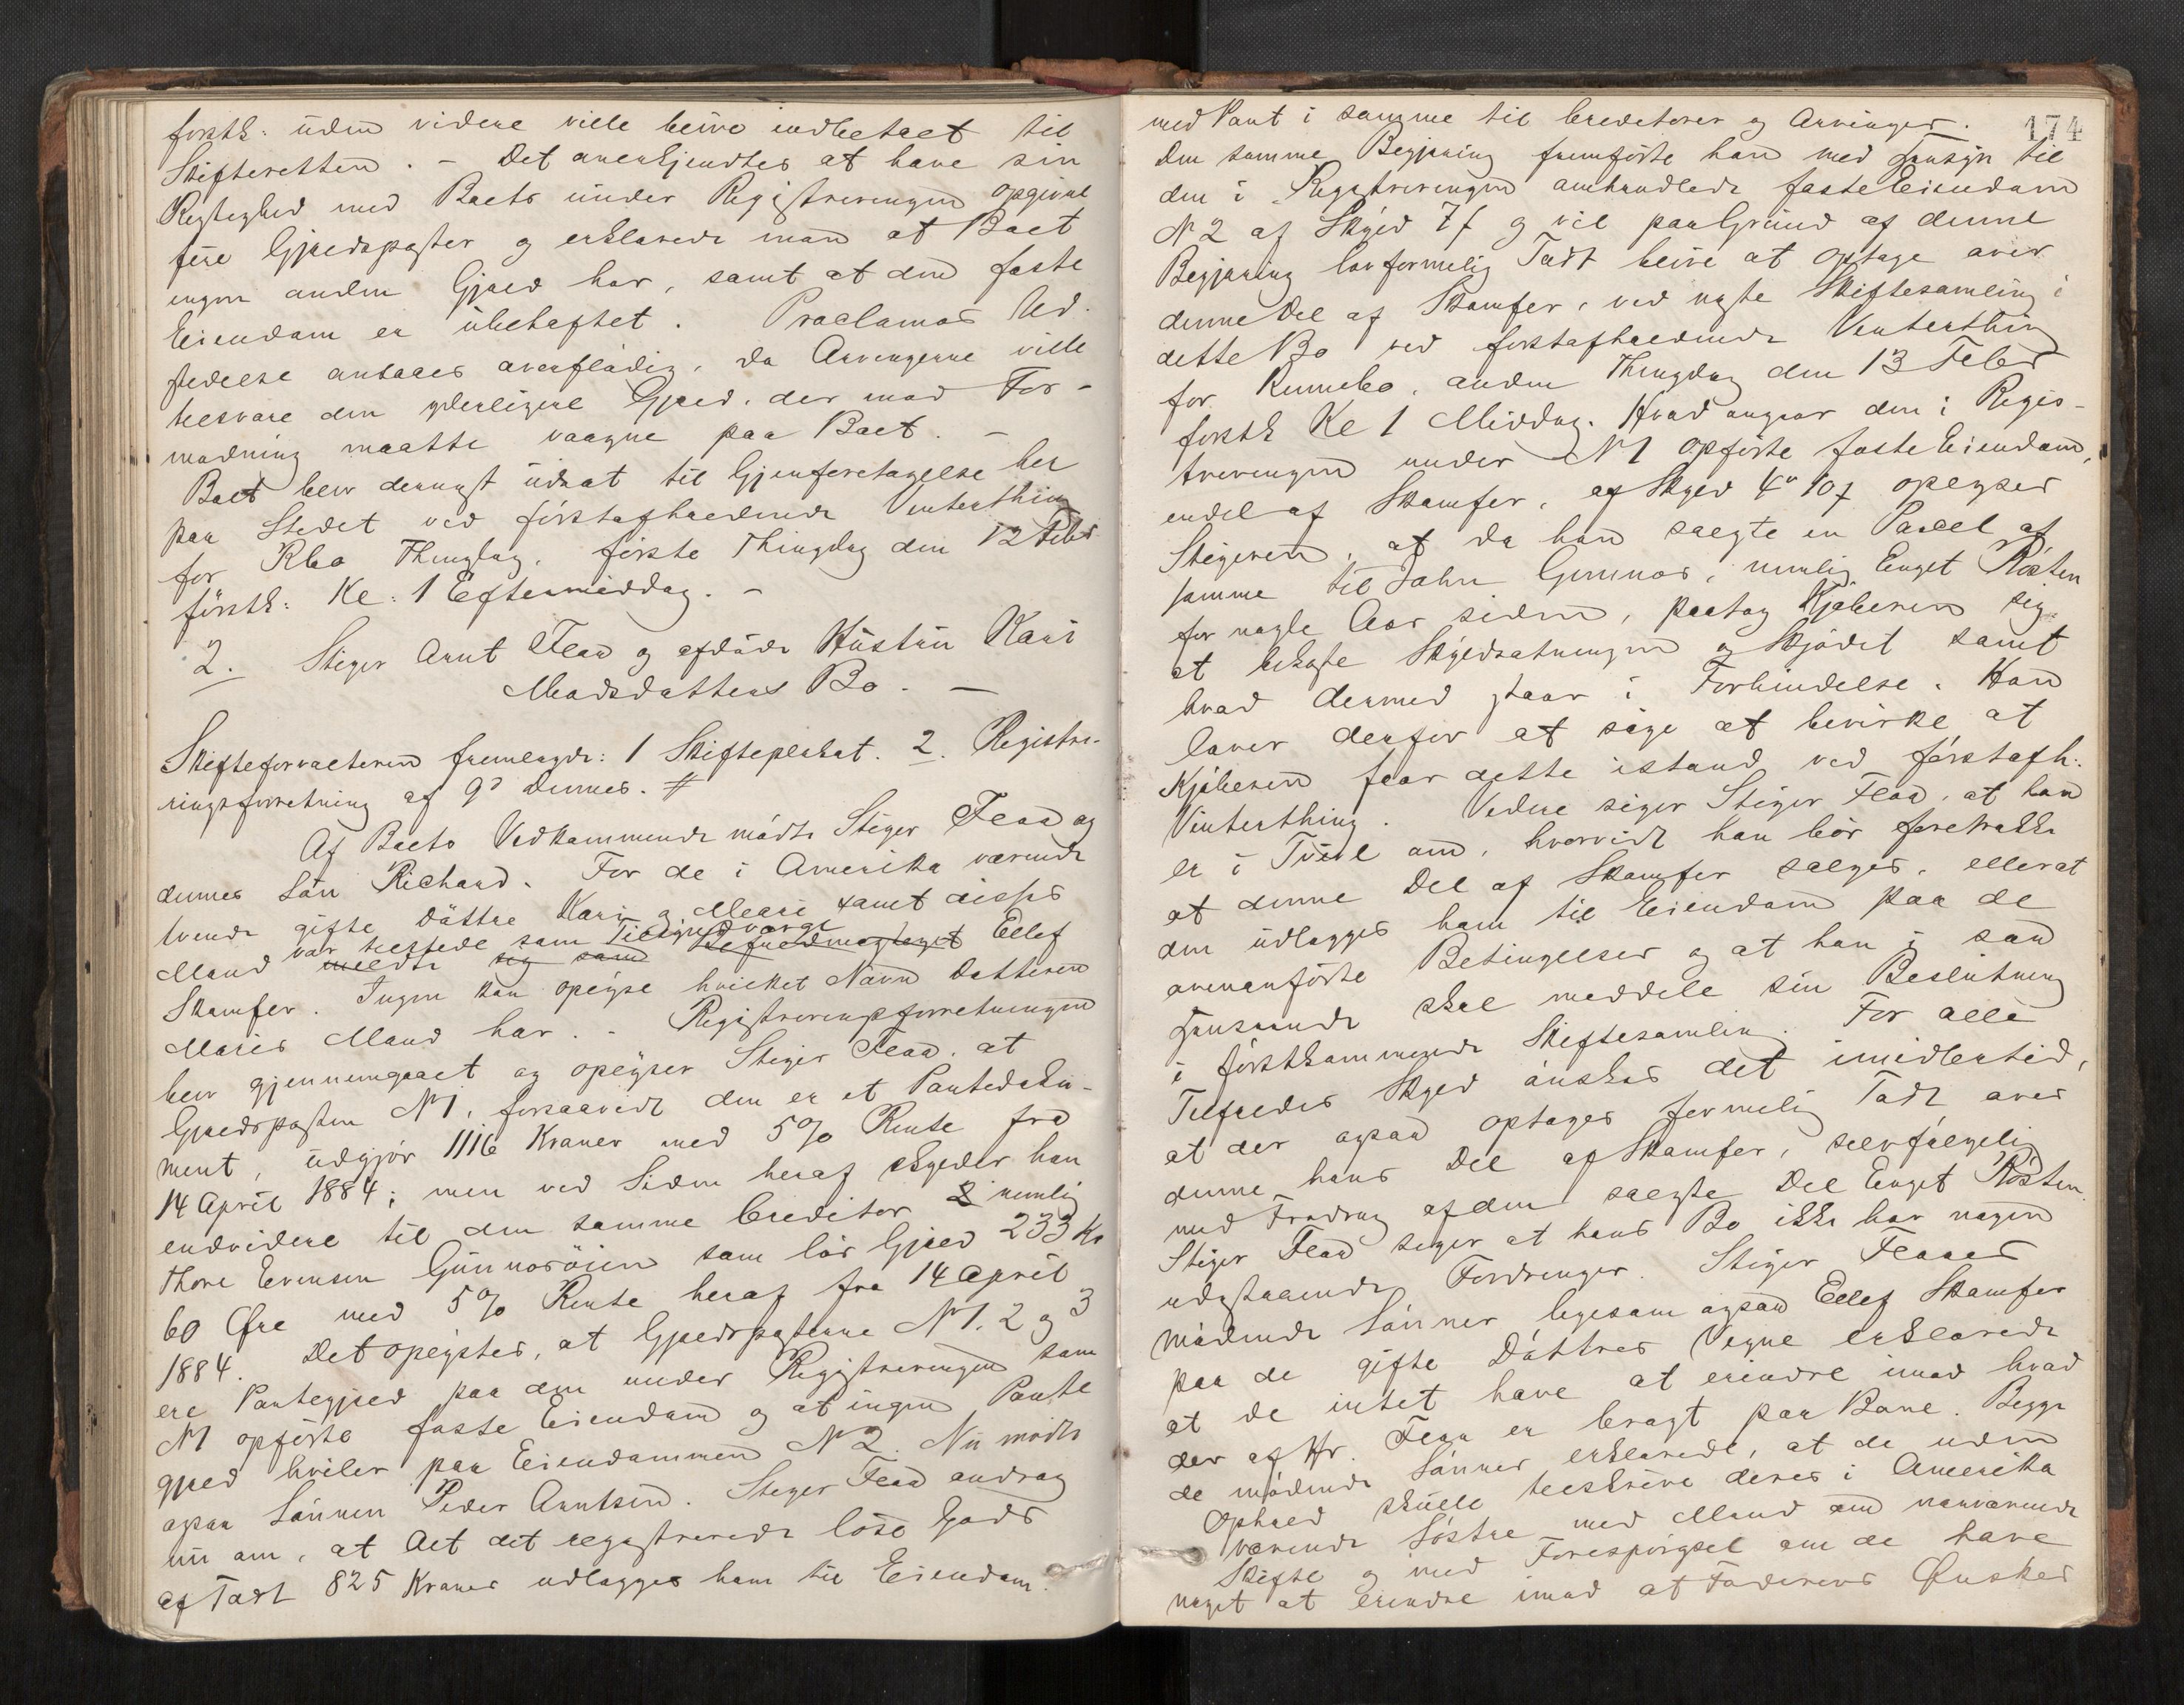 förstk. uden videre ville blive indbetalt til
Skifteretten. – Det anerkjendtes at have sin
Rigtighed med Boets under Registreringen opgivne
fire Gjældsposter og erklærede man at Boet
ingen anden Gjæld har, samt at den faste
Eiendom er ubeheftet. Proclamas Ud-
stedelse ansaaes overflödig, da Arvingerne ville
besvare den yderligere Gjæld, der mod For-
modning maatte vaagne paa Boet. –
Boet blev dernæst udsat til Gjenforetagelse her
paa Stedet ved förstafholdende Vinterthing
for Rbo Thinglag, förste Thingdag den 12 Febr
förstk: Kl: 1 Eftermiddag. –
2. Stiger Arnt Flaa og afdöde Hustru Kari
Madsdatters Bo. –
Skifteforvalteren fremlagde: 1 Skifteplakat. 2. Registre-
ringsforretning af 9d dennes. #
Af Boets Vedkommende mödte Stiger Flaa og
dennes Sön Richard. For de i Amerika værende
tvende gifte Döttre Kari og Mari samt disses
var tilstede som Tilsynsværge
Mænd meldte sig som Befuldmægtiget Ellef
Skamfer. Ingen kan oplyse hvilket Navn Datteren
Maris Mand har. – Registreringsforretningen
blev gjennemgaaet og oplyser Stiger Flaa, at
Gjældsposten N 1, forsaavidt den er et Pantedoku-
ment, udgjör 1116 Kroner med 5% Rente fra
14 April 1884; men ved Siden heraf skylder han
endvidere til den samme Creditor 2 nemlig
Thore Evensen Gunnesöien som lös Gjæld 233 Kr
60 Øre med 5% Rente heraf fra 14 April
1884. Det oplystes, at Gjældsposterne N 1. 2 og 3
ere Pantegjæld paa den under Registreringen som
N 1 opförte faste Eiendom og at ingen Pante
gjæld hviler paa Eiendommen N 2. Nu mödte
ogsaa Sönnen Peder Arntsen. Stiger Flaa androg
nu om, at Alt det registrerede löse Gods
af Taxt 825 Kroner udlægges ham til Eiendom
174
med Pant i samme til Creditorer og Arvinger.
Den samme Begjæring fremförte han med Hensyn til
den i Registreringen omhandlede faste Eiendom
N 2 af Skyld 7 f og vil paa Grund af denne
Begjæring lovformelig Taxt blive at optage over
denne Del af Skamfer, ved næste Skiftesamling i
dette Bo ved förstafholdende Vinterthing
for Rennebo, anden Thingdag den 13 Febr
förstk Kl 1 Middag. Hvad angaar den i Regis-
treringen under N 1 opförte faste Eiendom,
endel af Skamfer, af Skyld 4 10 f oplyses
Stigeren, at da han solgte en Parcel af
samme til John Gunnes, nemlig Enget Rösten
for nogle Aar siden, paatog Kjöberen sig
at bekoste Skyldsætningen og Skjödet samt
hvad dermed staar i Forbindelse. Han
lover derfor at söge at bevirke, at
Kjöberen faar dette istand ved förstafh.
Vinterthing. Videre siger Stiger Flaa, at han
er i Tvivl om, hvorvidt han bör foretrække
at denne Del af Skamfer sælges, eller at
den udlægges ham til Eiendom paa de
ovenanförte Betingelser og at han i saa
Henseende skal meddele sin Beslutning
i förstkommende Skiftesamling. For alle
Tilfældes Skyld önskes det imidlertid,
at der ogsaa optages formelig Taxt over
denne hans Del af Skamfer, selvfölgelig
med Fradrag af den solgte Del Enget Rösten.
Stiger Flaa siger at hans Bo ikke har nogen
udestaaende Fordringer. Stiger Flaaes
mödende Sönner ligesom ogsaa Ellef Skamfer
paa de gifte Döttres Vegne erklærede
at de intet have at erindre imod hvad
der af Hr. Flaa er bragt paa Bane. Begge
de mödende Sönner erklærede, at de uden
Ophold skulle tilskrive deres i Amerika
værende Söstre med Mænd om nærværende
Skifte og med Forespörgsel om de have
noget at erindre imod at Faderens Ønsker